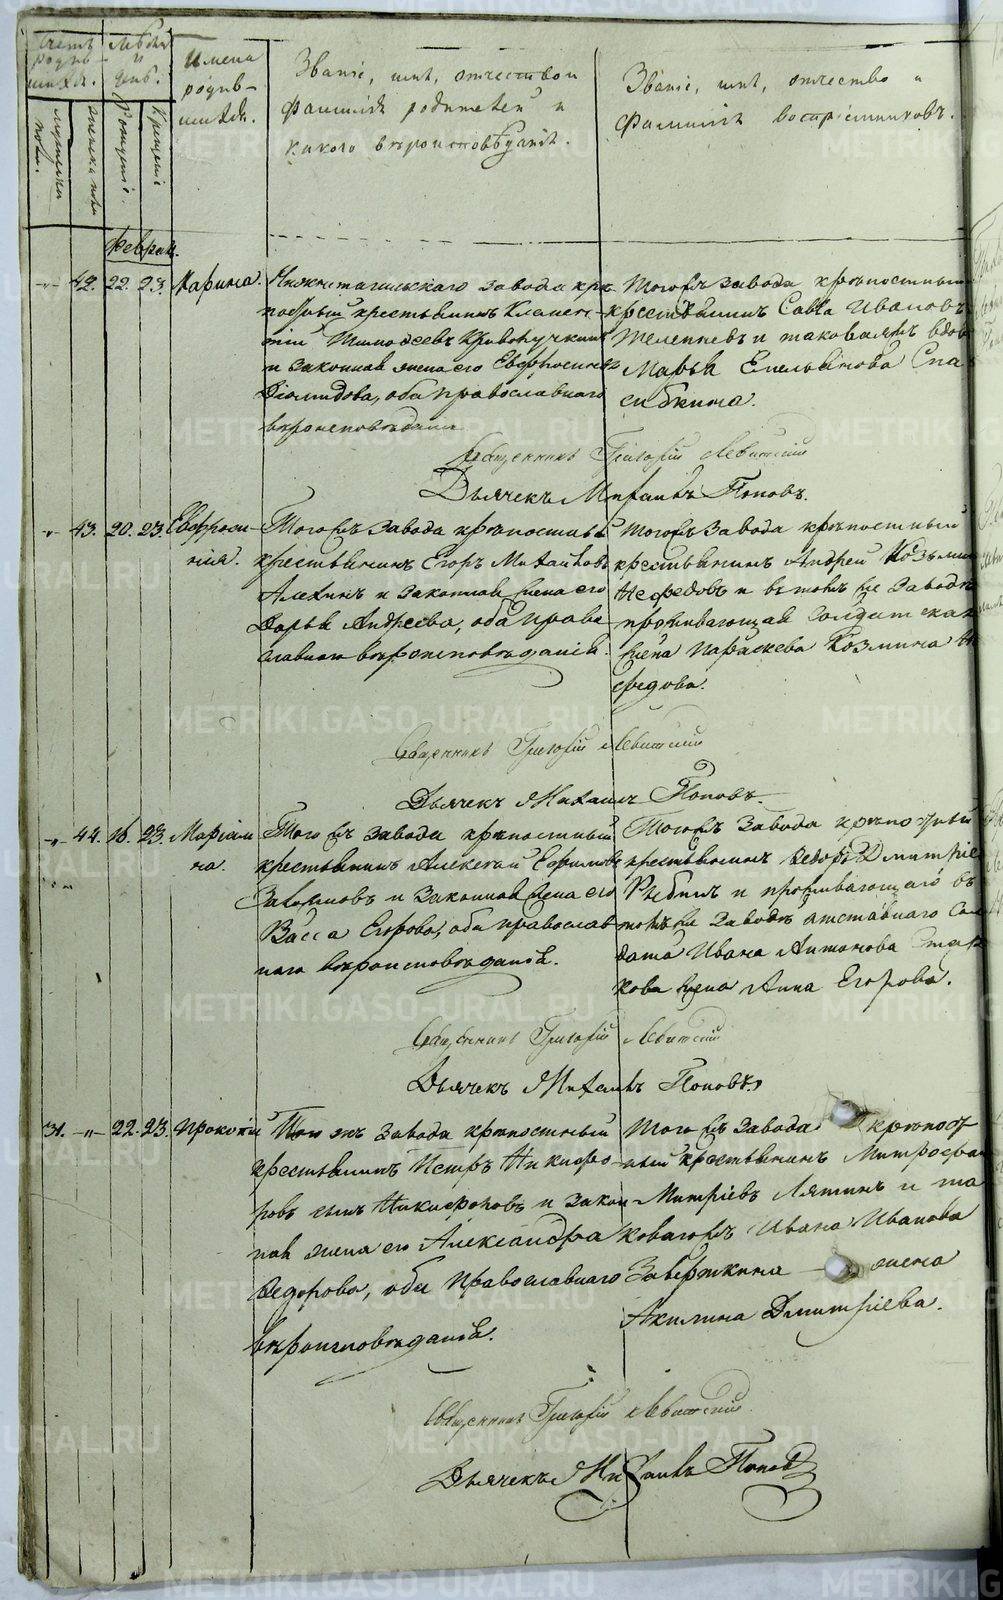 Счетъ родив-шихся.
Мѣсяцъ и день.
Имена родив-шихся.
Званіе, имя, отчество и фамилія родителей и какого вѣроисповѣданія.
Званіе, имя, отчество и фамилія воспріемниковъ.
Мужеска пола.
Женска пола
Рожденія.
Крещенія
Феврал.
42. 22. 23. Марина.
Нижнетагильскаго завода крѣ-
постный крестьянинъ Климен-
тій
и законная жена его Евфросинія
Діомидова, оба православнаго
вѣроисповѣданія
Тогожъ завода крѣпостный
крестьянинъ Савва Ивановъ
и таковаяжъ вдова
Марья Емельянова Спа-
сибкина.
Священникъ Григорій Левитскій
Дьячекъ Михаилъ Поповъ.
43. 20. 23. Евфроси-
нія.
Тогожъ завода крѣпостный
крестьянинъ Егоръ Михайловъ
Алехинъ и законная жена его
Дарья Андреева, оба право-
славнаго вѣроисповѣданія.
Тогожъ завода крѣпостный
крестьянинъ Андрей Козьминъ
Нефедовъ и въ томъ же заводѣ
проживающая солдатская
жена Параскева Козмина Не-
федова.
Священникъ Григорій Левитскій
Дьячекъ Михаилъ Поповъ.
44. 16. 23. Маріам-
на.
Тогожъ завода крѣпостный
крестьянинъ Алексѣй Ефимовъ
и законная жена его
Васса Егорова, оба православ-
наго вѣроисповѣданія.
Тогожъ завода крѣпостный
крестьянинъ Ѳедоръ Дмитріевъ
и проживающаго въ
томъ же заводѣ отставнаго сол-
дата Ивана Антонова Стар-
кова жена Анна Егорова.
Священникъ Григорій Левитскій
Дьячекъ Михаилъ Поповъ.
31. 22. 23. Прокопій
Тогожъ завода крѣпостный
крестьянинъ Петръ Никифо-
ровъ сынъ Никифоровъ и закон-
ная жена его Александра
Ѳедорова, оба православнаго
вѣроисповѣданія.
Тогожъ завода крѣпост-
ный крестьянинъ Митрофанъ
Митріевъ Лятинъ и та-
коваго жъ Ивана Иванова
Завержкина жена
Акилина Дмитріева.
Священникъ Григорій Левитскій
Дьячекъ Михаилъ Поповъ
METRIKI.GASO-URAL.RU